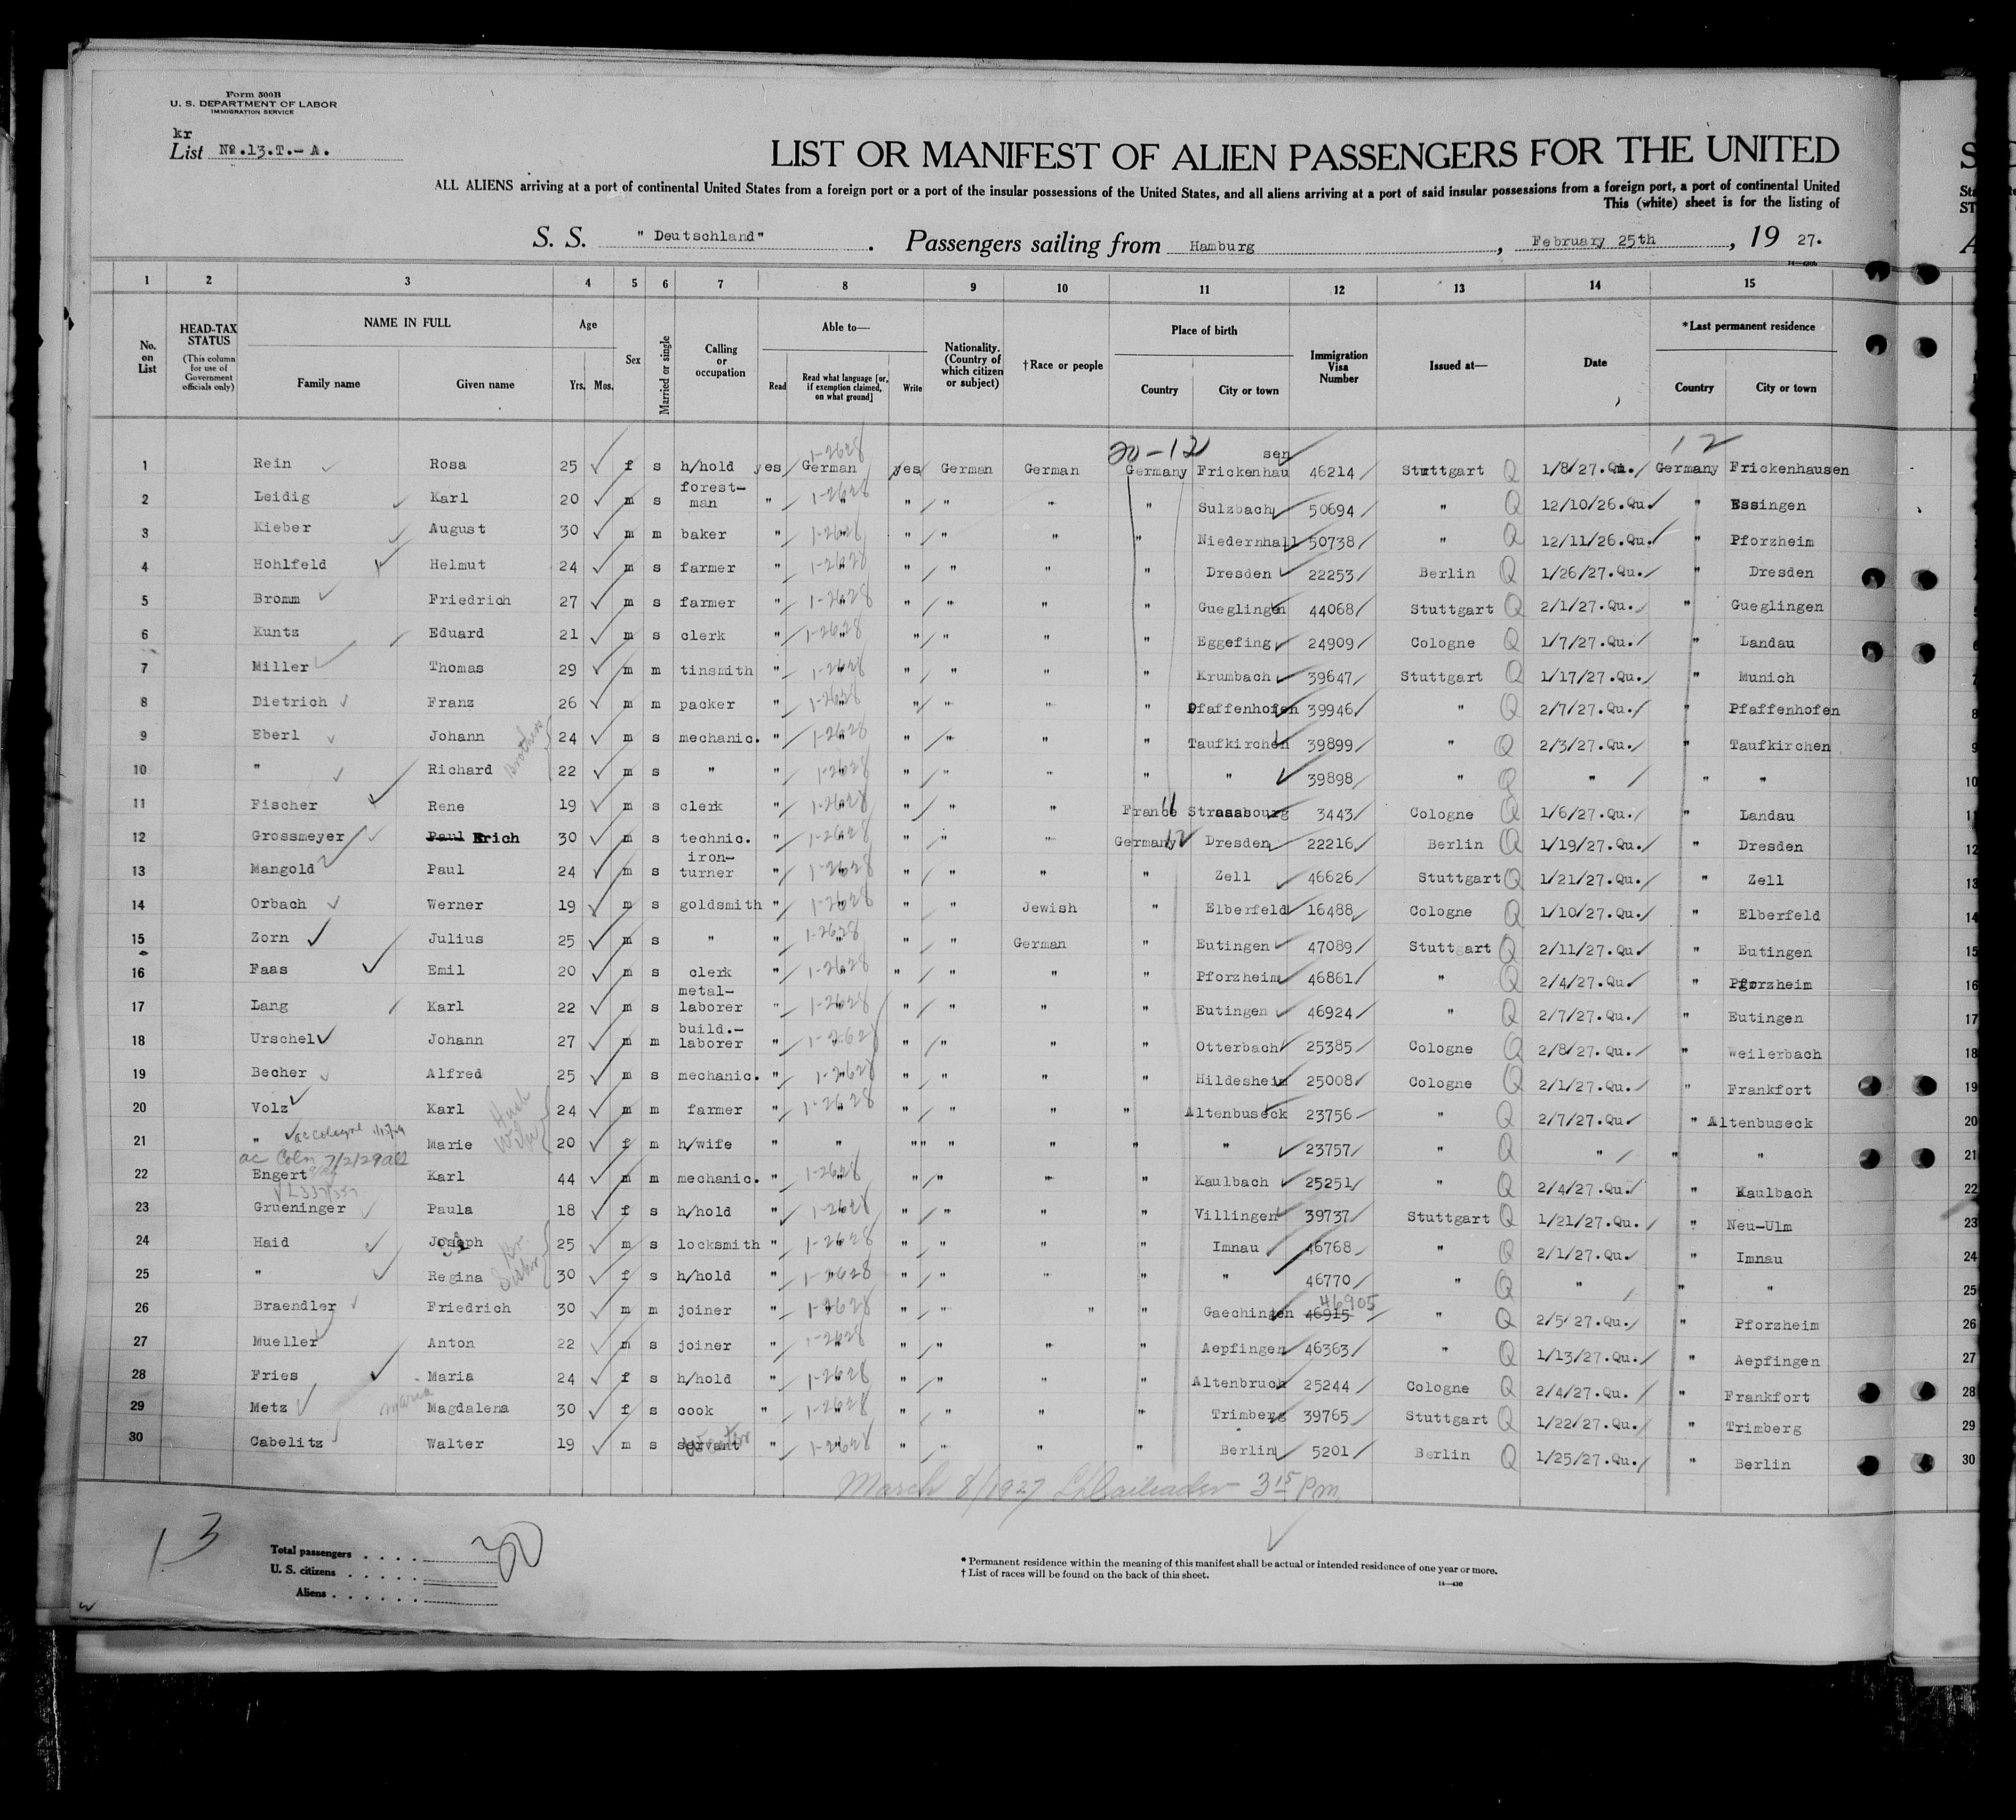 Form 500B
U. S. DEPARTMENT OF LABOR
IMMIGRATION SERVICE
kr
List No.13.T.- A.
LIST OR MANIFEST OF ALIEN PASSENGERS FOR THE UNITED
ALL ALIENS arriving at a port of continental United States from a foreign port or a port of the insular possessions of the United States, and all aliens arriving at a port of said insular possessions from a foreign port, a port of continental United
This (white) sheet is for the listing of
S. S. "Deutschland". Passengers sailing from Hamburg, February 25th, 19 27.
1 2 3 4 5 6 7 8 9 10 11 12 13 14 15
No. on List
HEAD-TAX STATUS (This column for use of Government officials only)
NAME IN FULL Family name Given name
Age Yrs. Mos.
Sex
Married or single
Calling or occupation
Able to— Read Read what language [or, if exemption claimed, on what ground] Write
Nationality. (Country of which citizen or subject)
†Race or people
Place of birth Country City or town
Immigration Visa Number
Issued at—
Date
*Last permanent residence Country City or town
20-12 12
1 Rein Rosa 25 f s h/hold yes German 1-2628 yes German German Germany Frickenhausen 46214 Stuttgart Q 1/8/27.Qu. Germany Frickenhausen
2 Leidig Karl 20 m s forest-man " " 1-2628 " " " " Sulzbach 50694 " Q 12/10/26.Qu. " Essingen
3 Kieber August 30 m m baker " " 1-2628 " " " " Niedernhall 50738 " Q 12/11/26.Qu. " Pforzheim
4 Hohlfeld Helmut 24 m s farmer " " 1-2628 " " " " Dresden 22253 Berlin Q 1/26/27.Qu. " Dresden
5 Bromm Friedrich 27 m s farmer " " 1-2628 " " " " Gueglingen 44068 Stuttgart Q 2/1/27.Qu. " Gueglingen
6 Kuntz Eduard 21 m s clerk " " 1-2628 " " " " Eggefing 24909 Cologne Q 1/7/27.Qu. " Landau
7 Miller Thomas 29 m m tinsmith " " 1-2628 " " " " Krumbach 39647 Stuttgart Q 1/17/27.Qu. " Munich
8 Dietrich Franz 26 m m packer " " 1-2628 " " " " Pfaffenhofen 39946 " Q 2/7/27.Qu. " Pfaffenhofen
9 Eberl Johann Brothers 24 m s mechanic. " " 1-2628 " " " " Taufkirchen 39899 " Q 2/3/27.Qu. " Taufkirchen
10 " Richard 22 m s " " " 1-2628 " " " " " 39898 " Q " " "
11 Fischer Rene 19 m s clerk " " 1-2628 " " " France 11 Strassbourg 3443 Cologne Q 1/6/27.Qu. " Landau
12 Grossmeyer Paul Erich 30 m s technic. " " 1-2628 " " " Germany 12 Dresden 22216 Berlin Q 1/19/27.Qu. " Dresden
13 Mangold Paul 24 m s iron-turner " " 1-2628 " " " " Zell 46626 Stuttgart Q 1/21/27.Qu. " Zell
14 Orbach Werner 19 m s goldsmith " " 1-2628 " " Jewish " Elberfeld 16488 Cologne Q 1/10/27.Qu. " Elberfeld
15 Zorn Julius 25 m s " " " 1-2628 " " German " Eutingen 47089 Stuttgart Q 2/11/27.Qu. " Eutingen
16 Faas Emil 20 m s clerk " " 1-2628 " " " " Pforzheim 46861 " Q 2/4/27.Qu. " Pforzheim
17 Lang Karl 22 m s metal-laborer " " 1-2628 " " " " Eutingen 46924 " Q 2/7/27.Qu. " Eutingen
18 Urschel Johann 27 m m build.-laborer " " 1-2628 " " " " Otterbach 25385 Cologne Q 2/8/27.Qu. " Weilerbach
19 Becher Alfred 25 m s mechanic. " " 1-2628 " " " " Hildesheim 25008 Cologne Q 2/1/27.Qu. " Frankfort
20 Volz Karl 24 m m farmer " " 1-2628 " " " " Altenbuseck 23756 " Q 2/7/27.Qu. " Altenbuseck
21 " Marie 20 f m h/wife " " " " " " " 23757 " Q " " "
22 Engert Karl 44 m m mechanic. " " 1-2628 " " " " Kaulbach 25251 " Q 2/4/27.Qu. " Kaulbach
23 Grueninger Paula 18 f s h/hold " " 1-2628 " " " " Villingen 39737 Stuttgart Q 1/21/27.Qu. " Neu-Ulm
24 Haid Joseph 25 m s locksmith " " 1-2628 " " " " Imnau 46768 " Q 2/1/27.Qu. " Imnau
25 " Regina Sister 30 f s h/hold " " 1-2628 " " " " " 46770 " Q " " "
26 Braendler Friedrich 30 m m joiner " " 1-2628 " " " " Gaechingen 46915 46905 " Q 2/5/27.Qu. " Pforzheim
27 Mueller Anton 22 m s joiner " " 1-2628 " " " " Aepfingen 46363 " Q 1/13/27.Qu. " Aepfingen
28 Fries Maria 24 f s h/hold " " 1-2628 " " " " Altenbruch 25244 Cologne Q 2/4/27.Qu. " Frankfort
29 Metz Maria Magdalena 30 f s cook " " 1-2628 " " " " Trimberg 39765 Stuttgart Q 1/22/27.Qu. " Trimberg
30 Cabelitz Walter 19 m s servant " " 1-2628 " " " " Berlin 5201 Berlin Q 1/25/27.Qu. " Berlin
March 8/1927 3 15 Pm
13
Total passengers 30
U. S. citizens
Aliens
* Permanent residence within the meaning of this manifest shall be actual or intended residence of one year or more.
† List of races will be found on the back of this sheet.
14—430